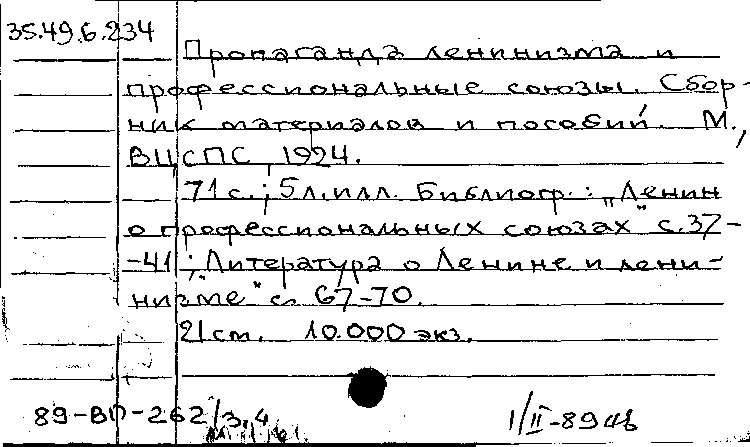 35.49.6.234
Пропаганда ленинизма и
профессиональные союзы. Сбор-
ник материалов и пособий. М.,
ВЦСПС, 1924.
71 с.; 5 л. илл. Библиогр.: „Ленин
о профессиональных союзах" с. 37-
-41; „Литература о Ленине и лени-
низме" с. 67-70.
21 см. 10.000 экз.
89-ВП-262/3,4
1/II-89